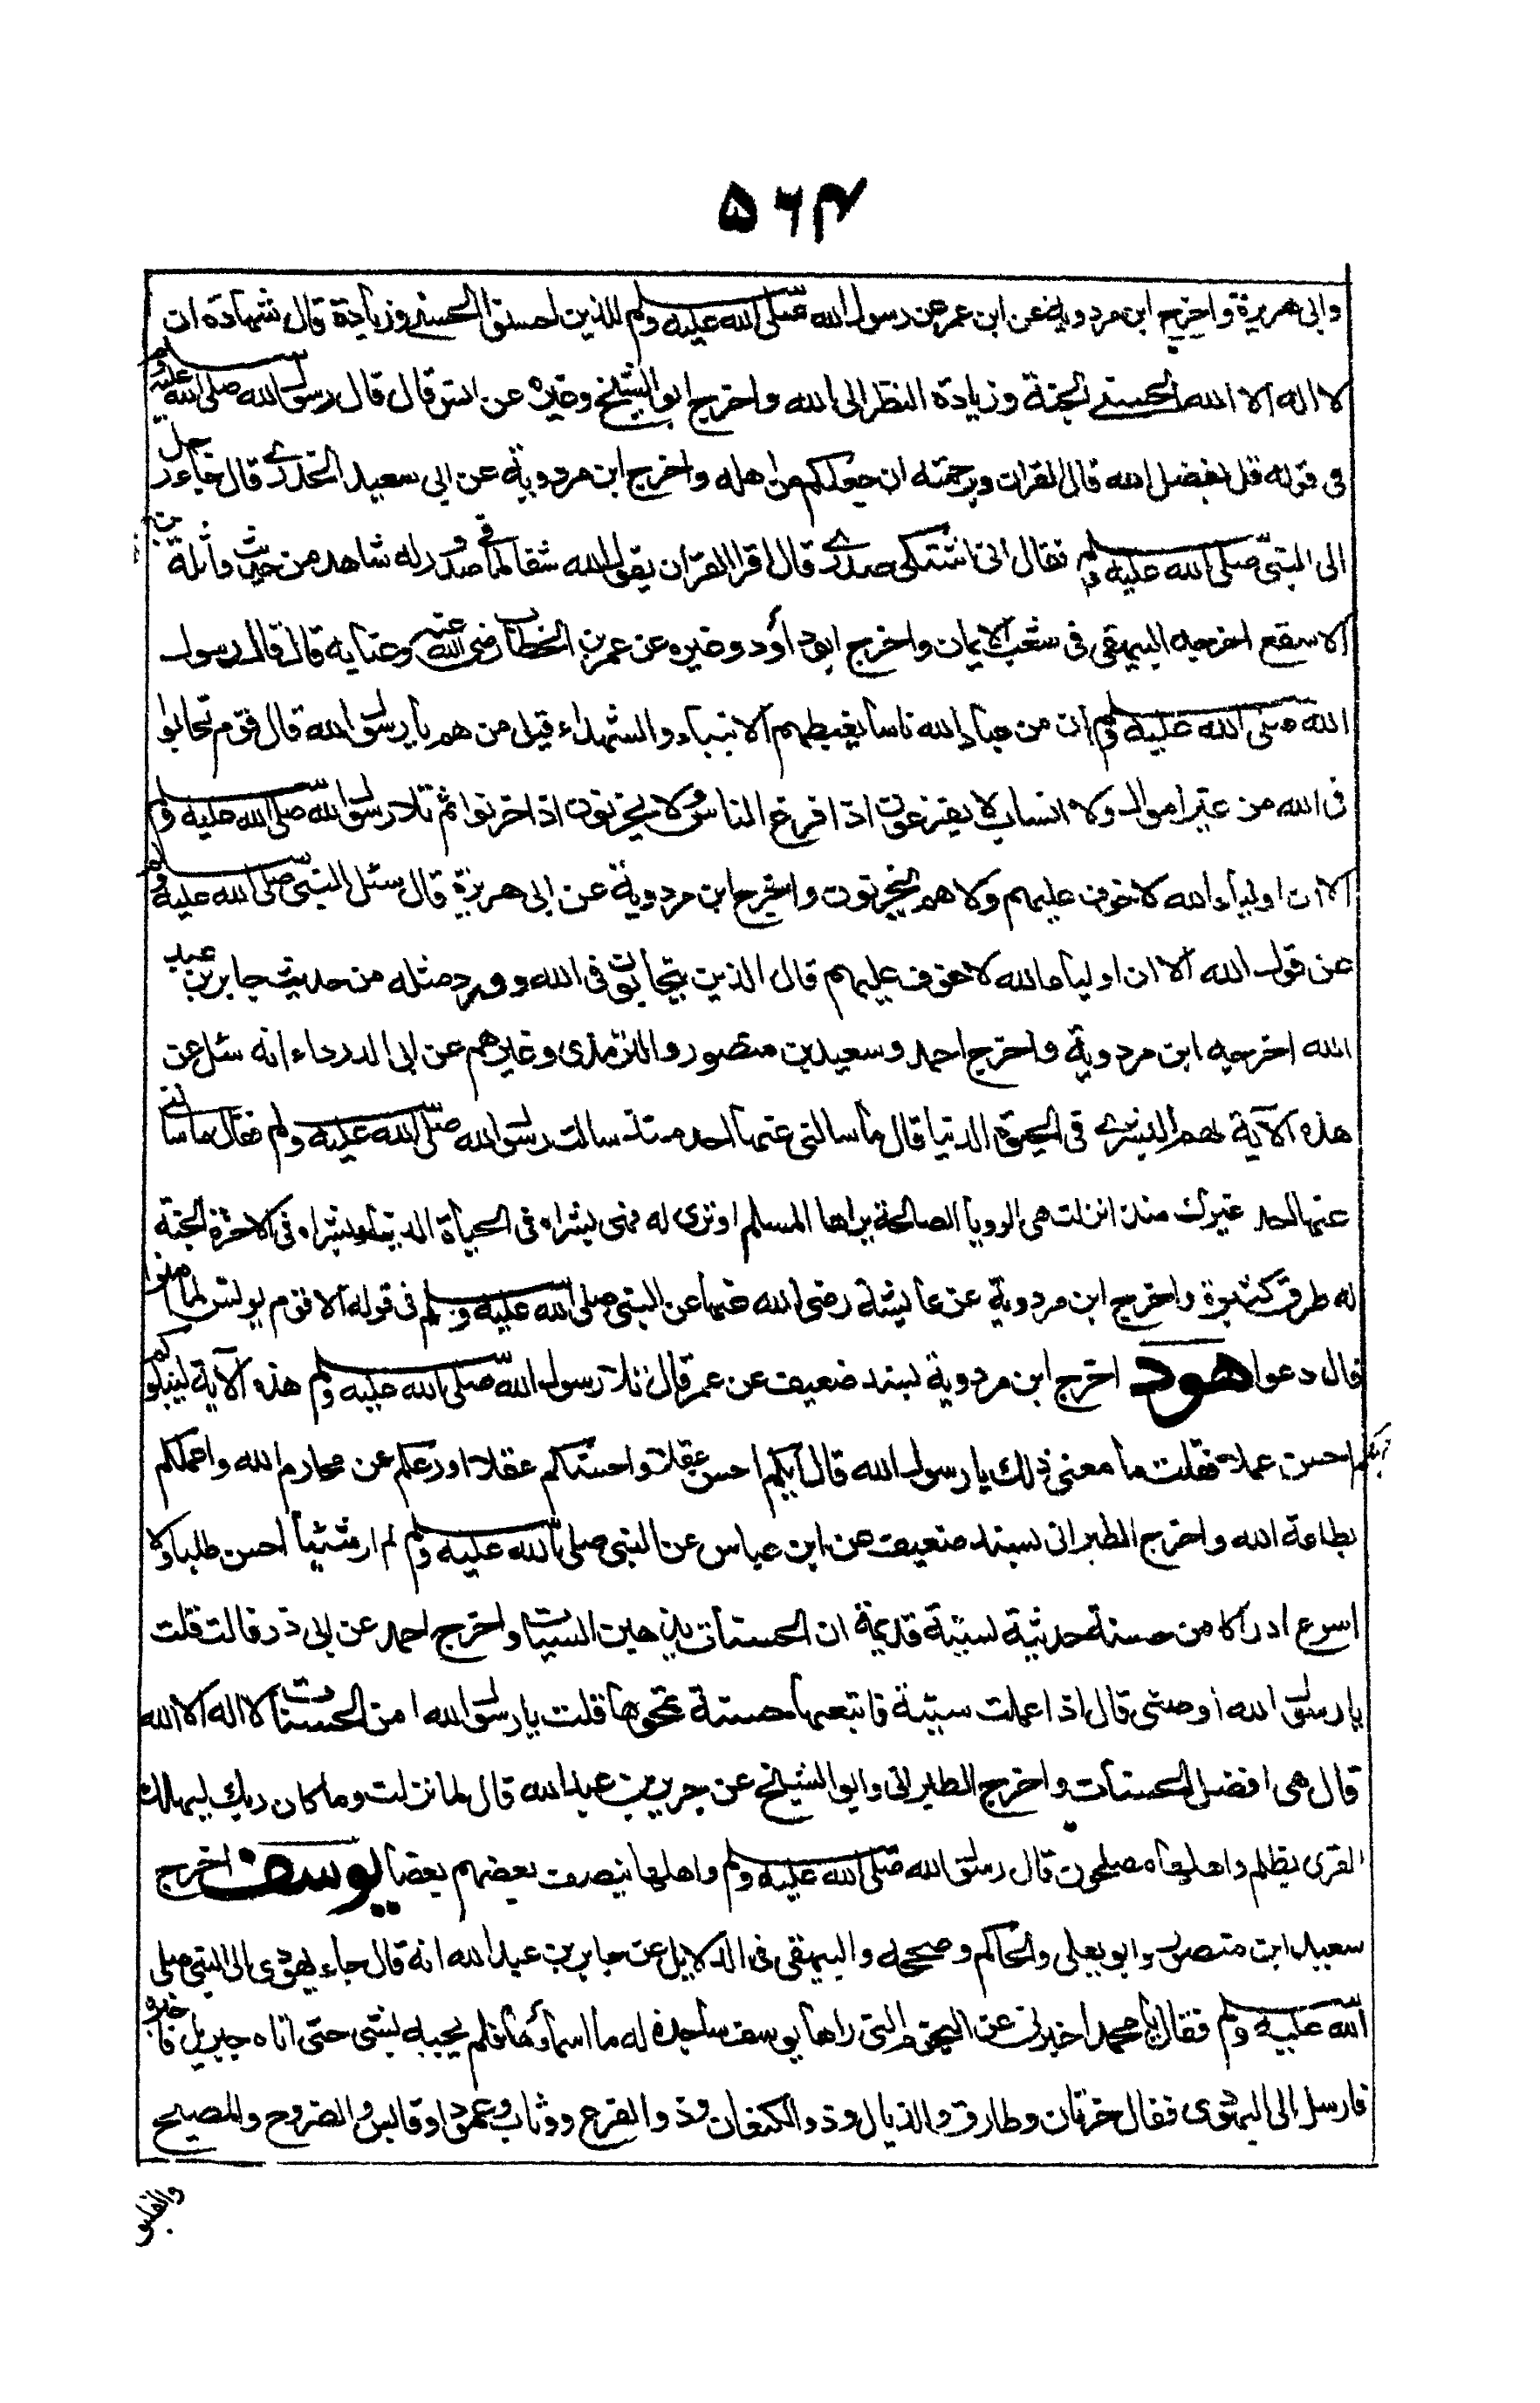 ۵۶۴
وابى هريرة واخرج ابن مردوية عن ابن عمر عن رسول الله صلى الله عليه وسلم للذين احسنوا الحسنى وزيادة قال شهادة ان
لا اله الا الله الحسنى الجنة وزيادة النظر الى الله واخرج ابو الشيخ وغيره عن انس قال قال رسول الله صلى الله عليه وسلم
فى قوله قل بفضل الله قال القران وبرحمته ان جعلكم من اهله واخرج ابن مردوية عن ابى سعيد الخدرى قال جاء رجل
الى النبى صلى الله عليه وسلم فقال انى اشتكى صدرى قال اقرا القران يقول الله شفا لما فى الصدور له شاهد من حديث واثلة بن
الاسقع اخرجه البيهقى فى شعب الايمان واخرج ابو داود وغيره عن عمر بن الخطاب رضى الله عنه وعنا به قال قال رسول
الله صلى الله عليه وسلم ان من عباد الله ناسا يغبطهم الانبياء والشهداء قيل من هم يا رسول الله قال قوم تحابوا
فى الله من غير اموال ولا انساب لا يفزعون اذا فزع الناس ولا يحزنون اذا حزنوا ثم تلا رسول الله صلى الله عليه وسلم
الا ان اولياء الله لا خوف عليهم ولا هم يحزنون واخرج ابن مردوية عن ابى هريرة قال سئل النبى صلى الله عليه وسلم
عن قول الله الا ان اولياء الله لا خوف عليهم قال الذين يتحابون فى الله وورد مثله من حديث جابر بن عبد
الله اخرجه ابن مردوية واخرج احمد وسعيد بن منصور والترمذى وغيرهم عن ابى الدرداء انه سئل عن
هذه الآية لهم البشرى فى الحيوة الدنيا قال ما سالنى عنها احد منذ سالت رسول الله صلى الله عليه وسلم فقال ما سالنى
عنها احد غيرك منذ انزلت هى الرويا الصالحة يراها المسلم او ترى له فهى بشراه فى الحياة الدنيا وبشراه فى الاخرة الجنة
له طرق كثيرة واخرج ابن مردوية عن عايشة رضى الله عنها عن النبى صلى الله عليه وسلم فى قوله الا قوم يونس لما امنوا
قال دعوا هود اخرج ابن مردوية بسند ضعيف عن عمر قال تلا رسول الله صلى الله عليه وسلم هذه الآية ليبلوكم
ايكم احسن عملا فقلت ما معنى ذلك يا رسول الله قال ايكم احسن عقلا واحسنكم عقلا اورعكم عن محارم الله واعملكم
بطاعة الله واخرج الطبرانى بسند ضعيف عن ابن عباس عن النبى صلى الله عليه وسلم لم ار شيئا احسن طلبا ولا
اسرع ادراكا من حسنة حديثة لسيئة قديمة ان الحسنات يذهبن السيئات واخرج احمد عن ابى ذر قالت قلت
يا رسول الله اوصنى قال اذا عملت سيئة فاتبعها حسنة تمحوها قلت يا رسول الله امن الحسنات لا اله الا الله
قال هى افضل الحسنات واخرج الطبرانى وابو الشيخ عن جرير بن عبد الله قال لما نزلت وما كان ربك ليهلك
القرى بظلم واهلها مصلحون قال رسول الله صلى الله عليه وسلم واهلها ينصف بعضهم بعضا يوسف اخرج
سعيد ابن منصور وابو يعلى والحاكم وصححه والبيهقى فى الدلايل عن جابر بن عبد الله انه قال جاء يهودى الى النبى صلى
الله عليه وسلم فقال يا محمد اخبرنى عن النجوم التى راها يوسف ساجدة له ما اسماؤها فلم يجبه بشى حتى اتاه جبريل فاخبره
فارسل الى اليهودى فقال خرثان وطارق والذيال وذو الكنفان وذو الفرع ووثاب وعمودا وقابس والضروح والمصبح
والفيلق